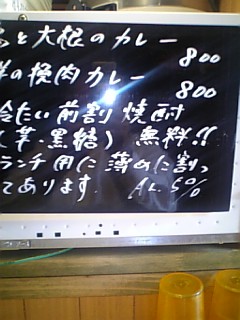 と大根のカレー
800
の挽肉カレー
800
冷たい前割焼酎
(芋・黒糖) 無料!!
ランチ用に薄めに割っ
てあります. AL.5%